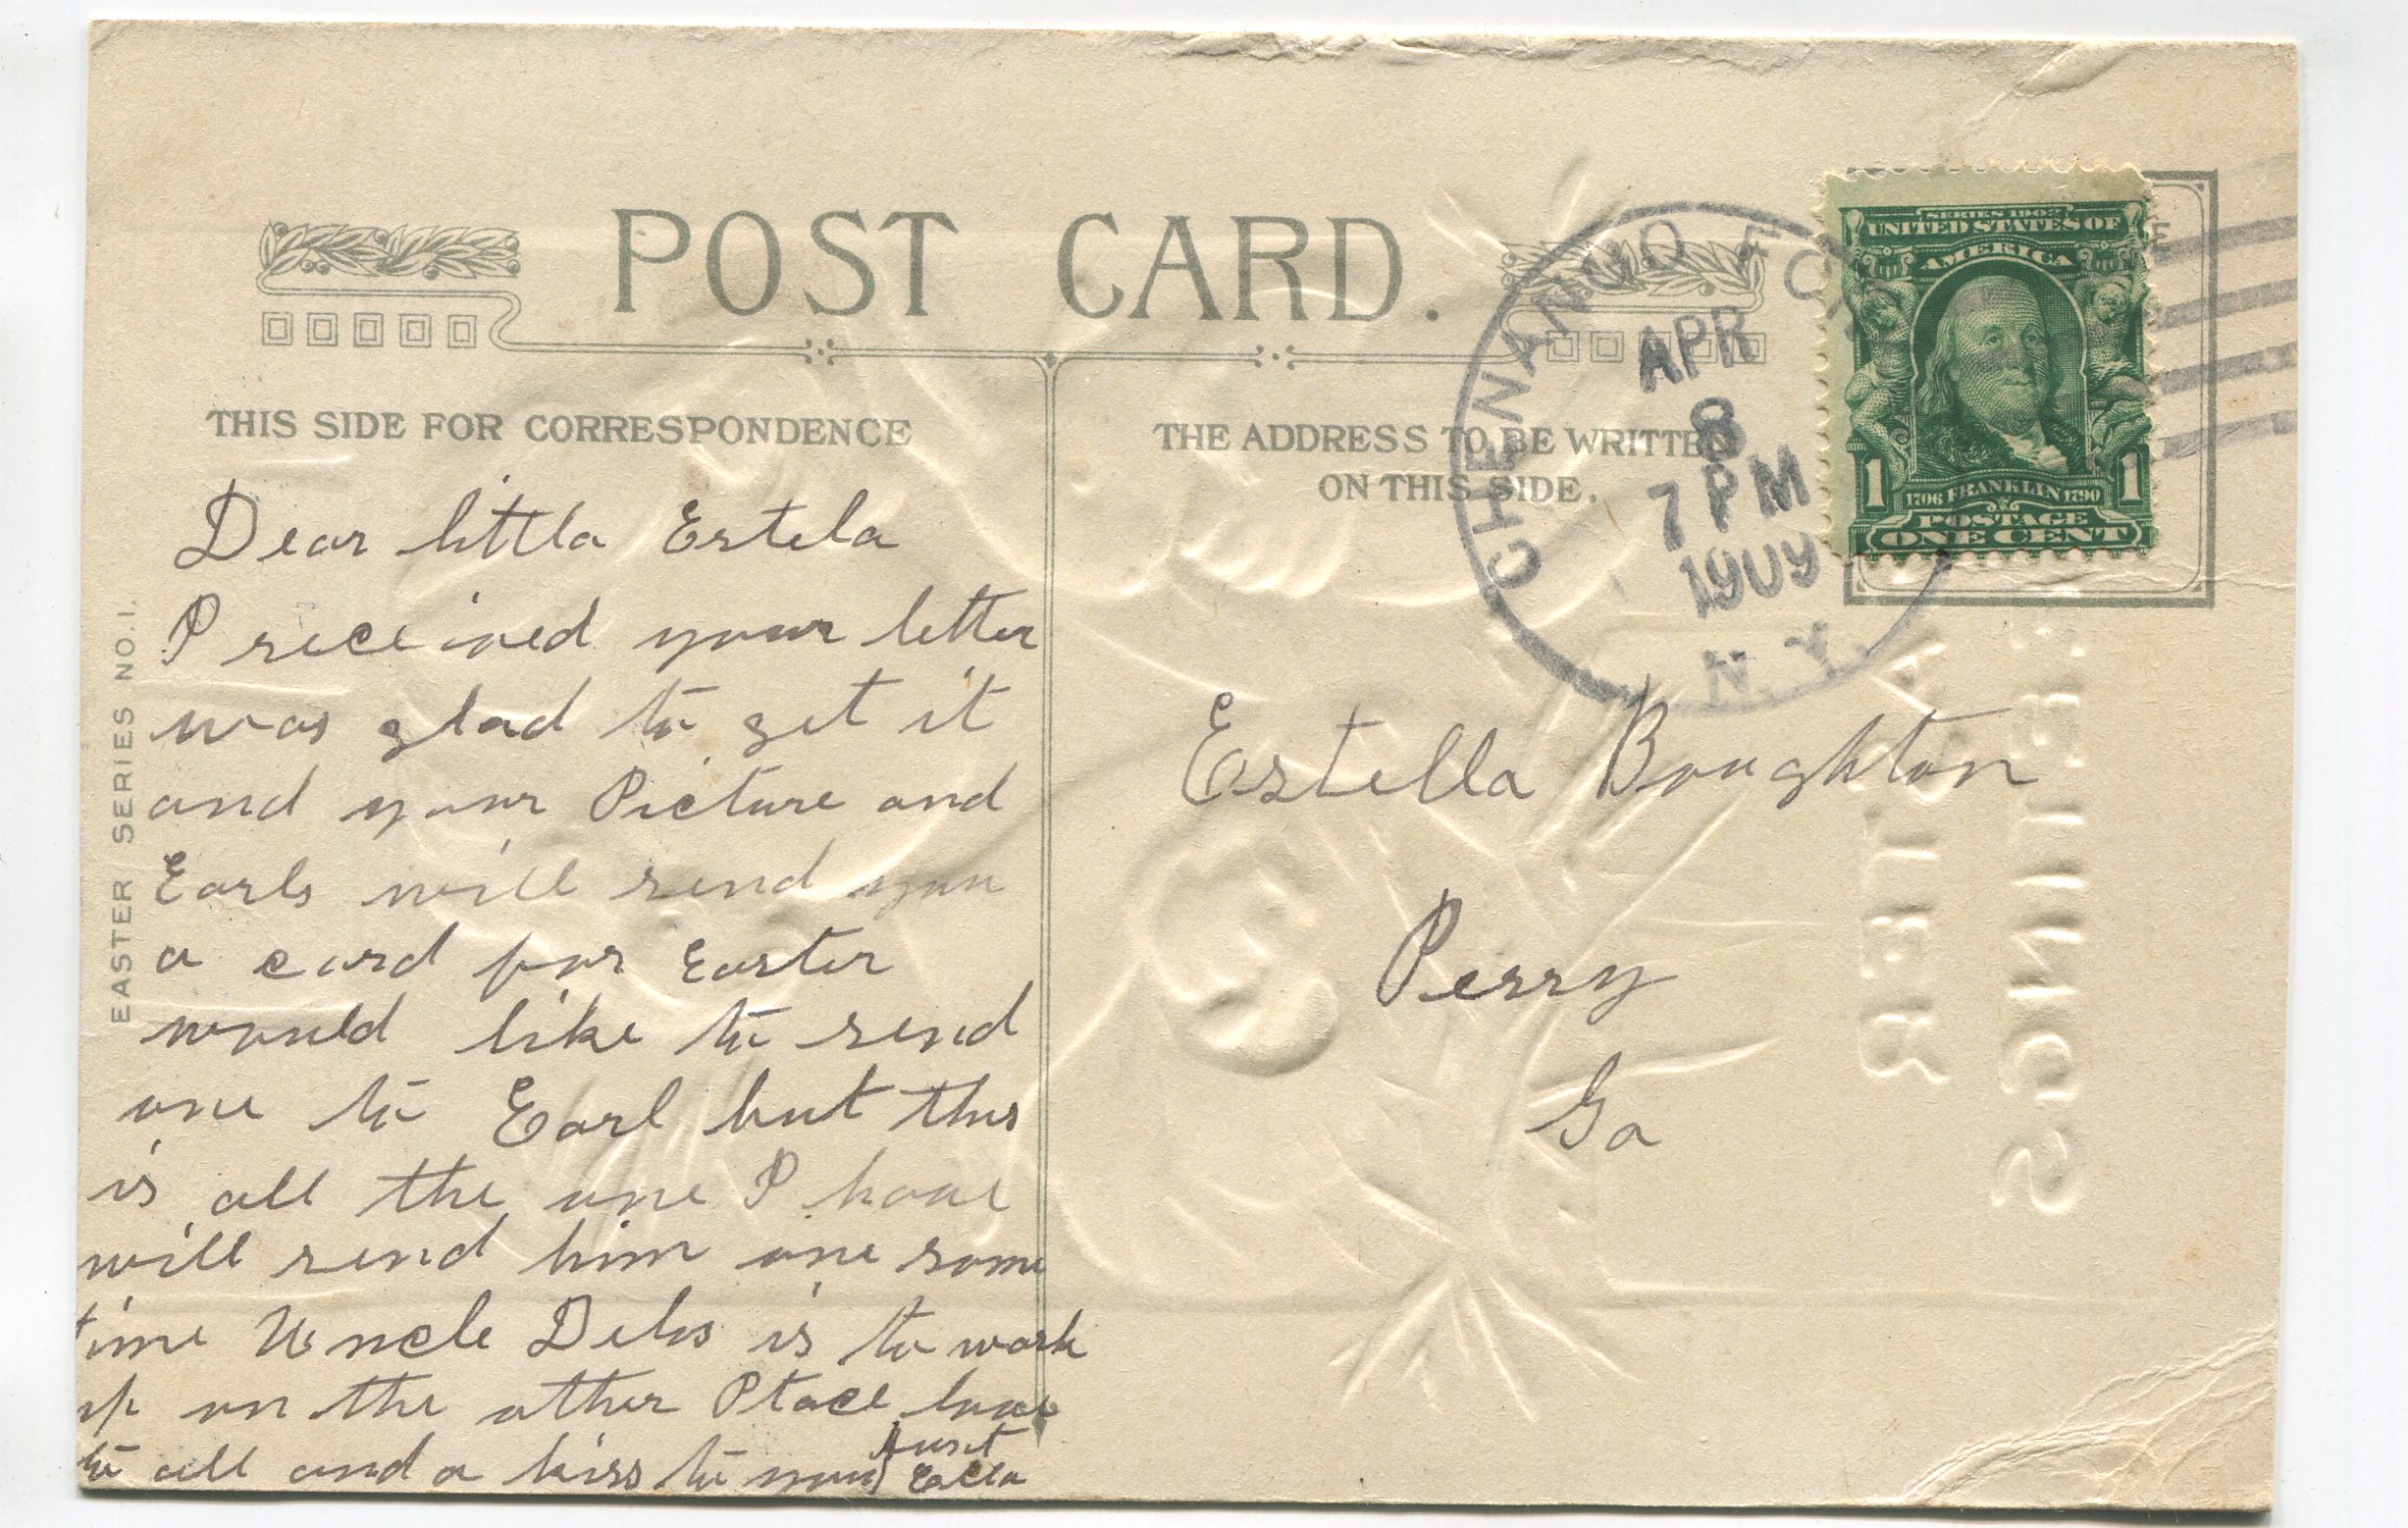 POST CARD.
THIS SIDE FOR CORRESPONDENCE
THE ADDRESS TO BE WRITTEN
ON THIS SIDE.
EASTER SERIES NO. 1.
CHENANGO FO
APR
8
7 PM
1909
N.Y.
SERIES 1902
UNITED STATES OF
AMERICA
1706 FRANKLIN 1790
1 1
POSTAGE
ONE CENT
Dear little Estela
I received your letter
was glad to get it
and your Picture and
Earls will send you
a card for Easter
would like to send
one to Earl but this
is all the one I have
will send him one some
time Uncle Delos is to work
up on the other Place love
to all and a kiss to you Aunt
Estella Boughton
Perry
Ga